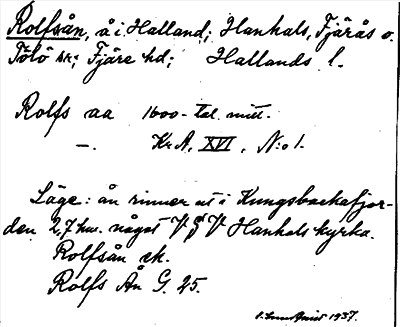 Rolfsån, å i Halland; Hanhals, Fjärås o.
Tölö sn; Fjäre hd; Hallands l.
Rolfs aa 1600-tal. mitt.
—. Kr.A, XVI, N:o 1.
Läge: ån rinner ut i Kungsbackafjor-
den 2,7 km. något V g V Hanhals kyrka.
Rolfsån ek.
Rolfs Ån G. 25.
1937.